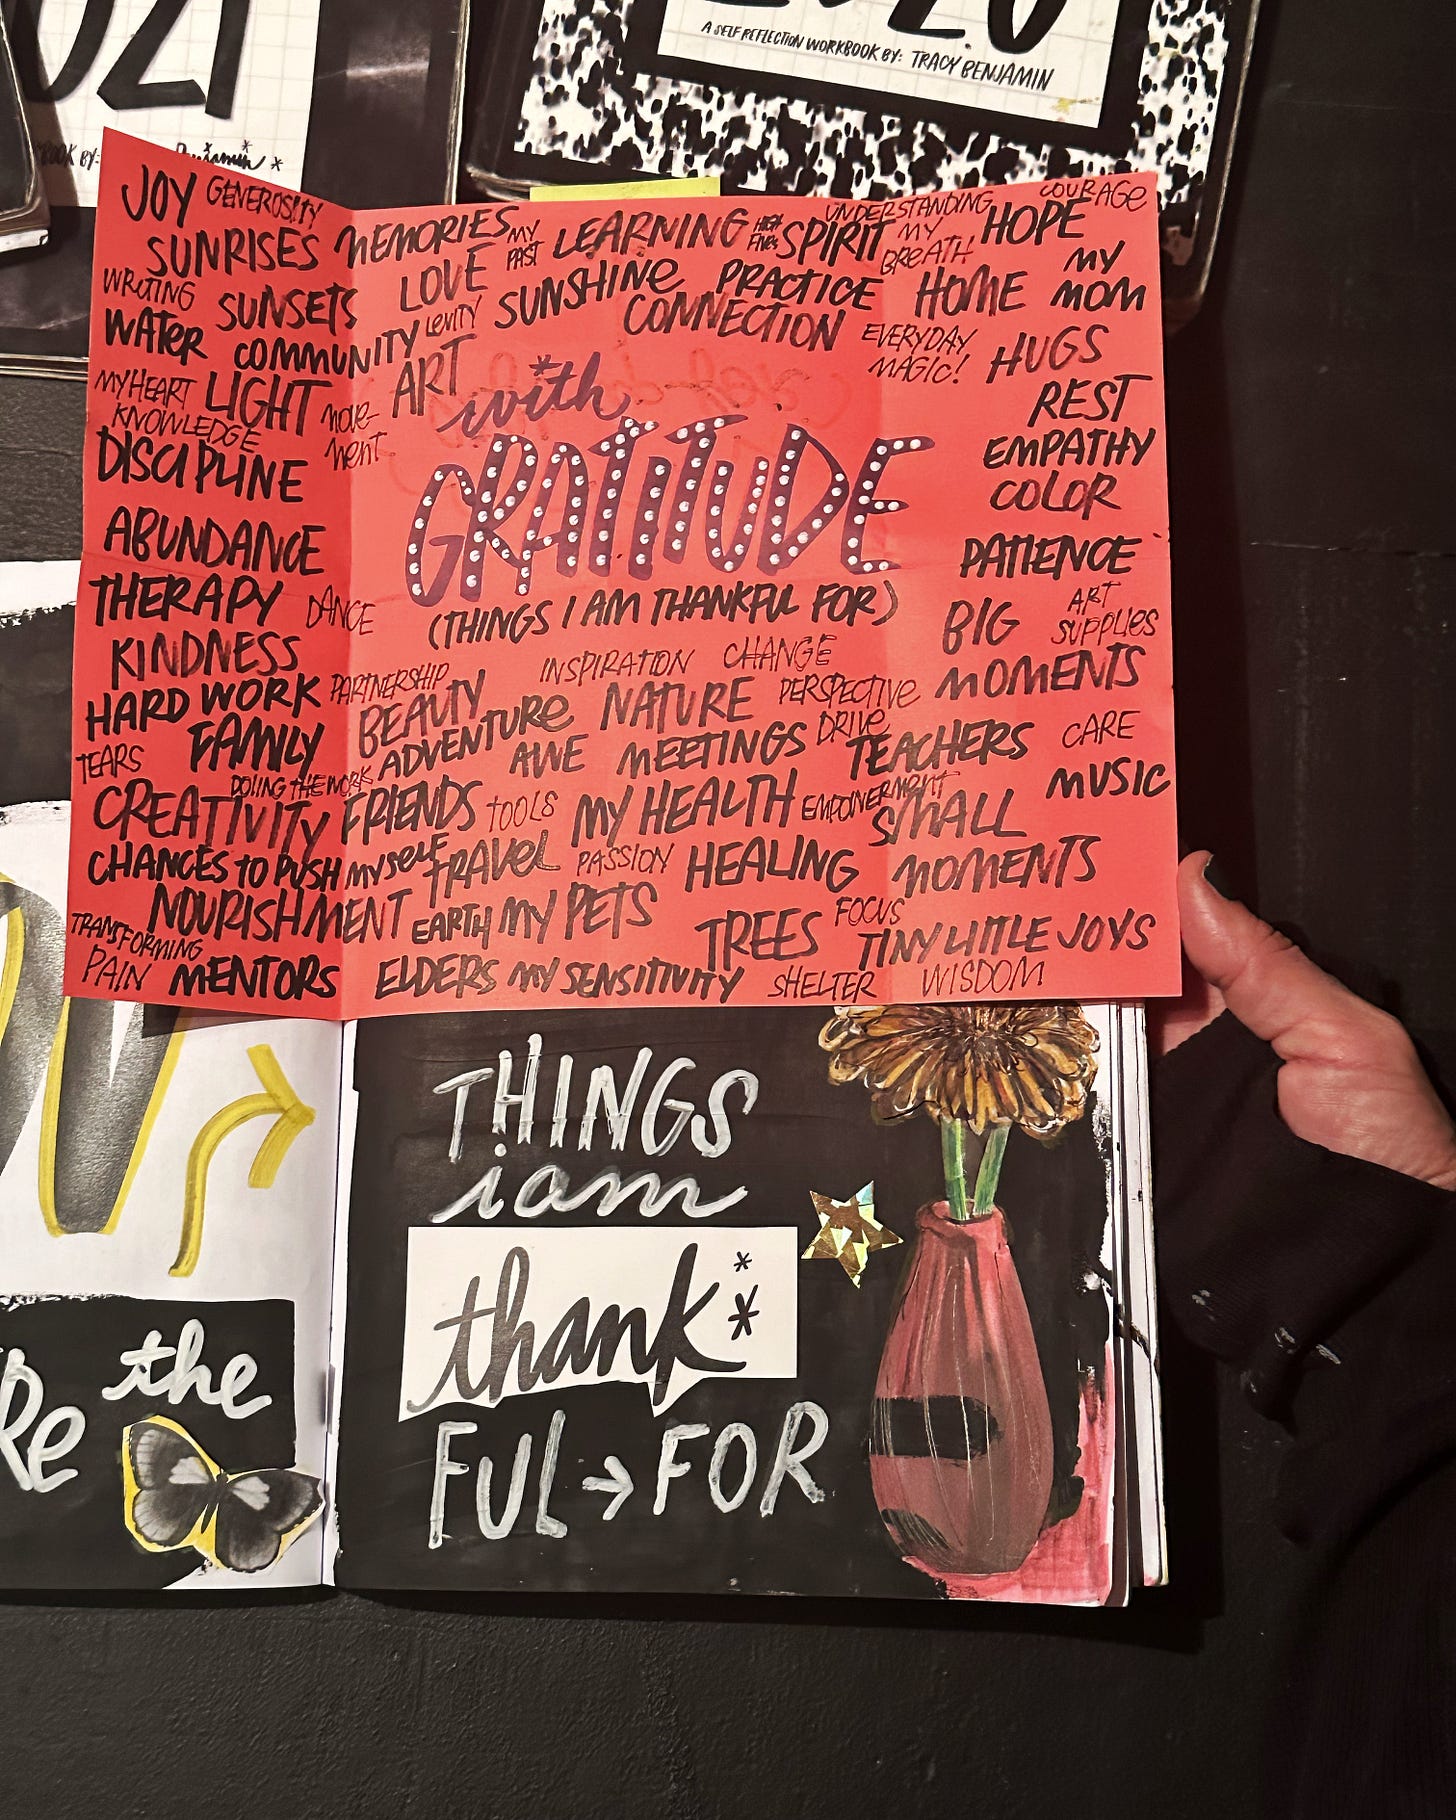 2021
BOOK BY: Benjamin *
2020
A SELF REFLECTION WORKBOOK BY: TRACY BENJAMIN
JOY GENEROSITY
SUNRISES
WRITING
SUNSETS
WATER
COMMUNITY
MY HEART
LIGHT
KNOWLEDGE
MOVE-
MENT
DISCIPLINE
ABUNDANCE
THERAPY
DANCE
KINDNESS
HARD WORK
PARTNERSHIP
FAMILY
TEARS
DOING THE WORK
CREATIVITY
CHANCES TO PUSH MYSELF
NOURISHMENT
TRANSFORMING
PAIN
MENTORS
MEMORIES
MY
PAST
LEARNING
HIGH
FIVES
SPIRIT
UNDERSTANDING
COURAGE
LOVE
LEVITY
SUNSHINE
PRACTICE
CONNECTION
MY
BREATH
HOPE
HOME
MY
MOM
EVERYDAY
MAGIC!
HUGS
ART
REST
EMPATHY
COLOR
*with
GRATITUDE
(THINGS I AM THANKFUL FOR)
PATIENCE
BIG
MOMENTS
ART
SUPPLIES
INSPIRATION
CHANGE
BEAUTY
ADVENTURE
NATURE
PERSPECTIVE
AWE
MEETINGS
DRIVE
TEACHERS
CARE
MUSIC
FRIENDS
TOOLS
MY HEALTH
EMPOWERMENT
SMALL
MOMENTS
TRAVEL
PASSION
HEALING
EARTH
MY PETS
TREES
FOCUS
TINY LITTLE JOYS
ELDERS
MY SENSITIVITY
SHELTER
WISDOM
THINGS
i am
thank**
FUL → FOR
Re the